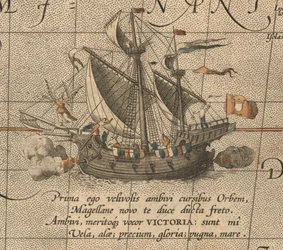 Prima ego velivolis ambivi cursibus Orbem,
Magellane novo te duce ducta freto.
Ambivi, meritoq; vocor VICTORIA: sunt mi
Vela, alæ; precium, gloria; pugna, mare.